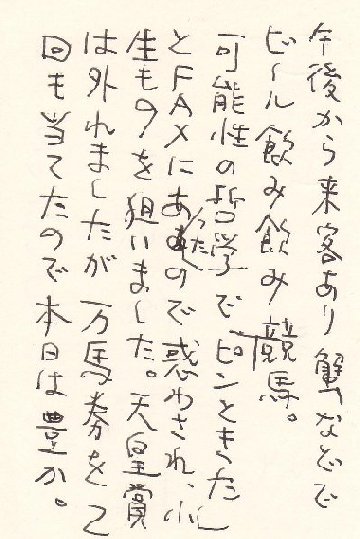 午後から来客あり蟹などで
ビール飲み飲み競馬。
可能性の哲学でピンときた」
とFAXにあったので惑わされ、小
生もを狙いました。天皇賞
は外れましたが万馬券を2
回も当てたので本日は豊か。